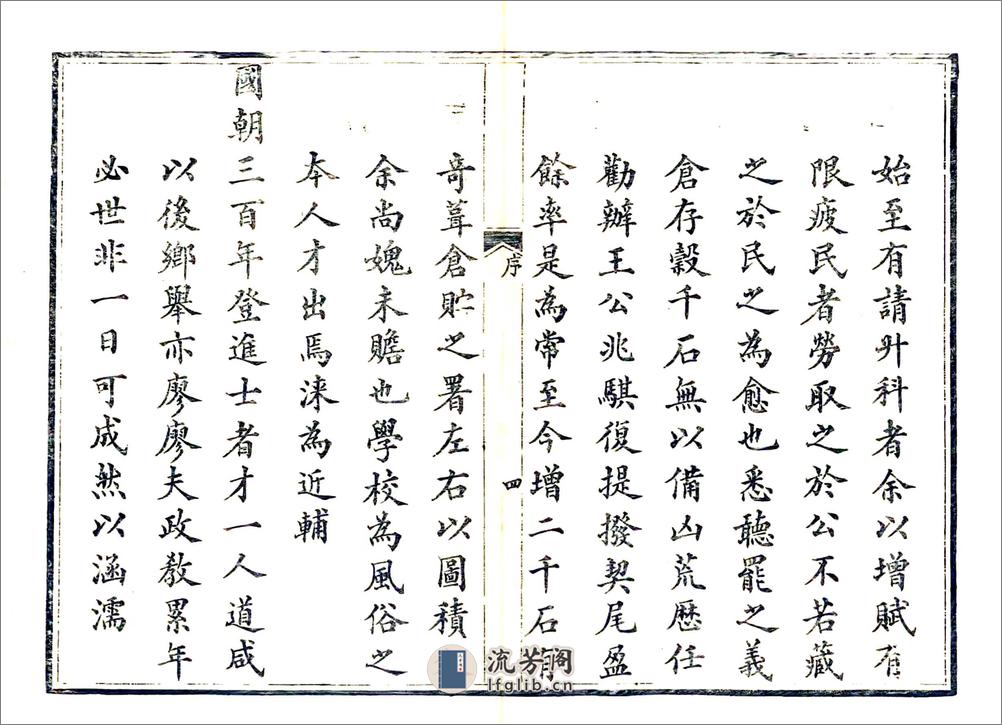 始至有請升科者余以增賦有
限疲民者勞取之於公不若藏
之於民之為愈也悉聽罷之義
倉存穀千石無以備凶荒歷任
勸辦王公兆騏復提撥契尾盈
餘率是為常至今增二千石
序
四
竒葺倉貯之署左右以圖積
余尚媿未贍也學校為風俗之
本人才出焉淶為近輔
國朝三百年登進士者才一人道咸
以後鄉舉亦廖廖夫政教累年
必世非一日可成然以涵濡
流芳閣
lfglib.cn